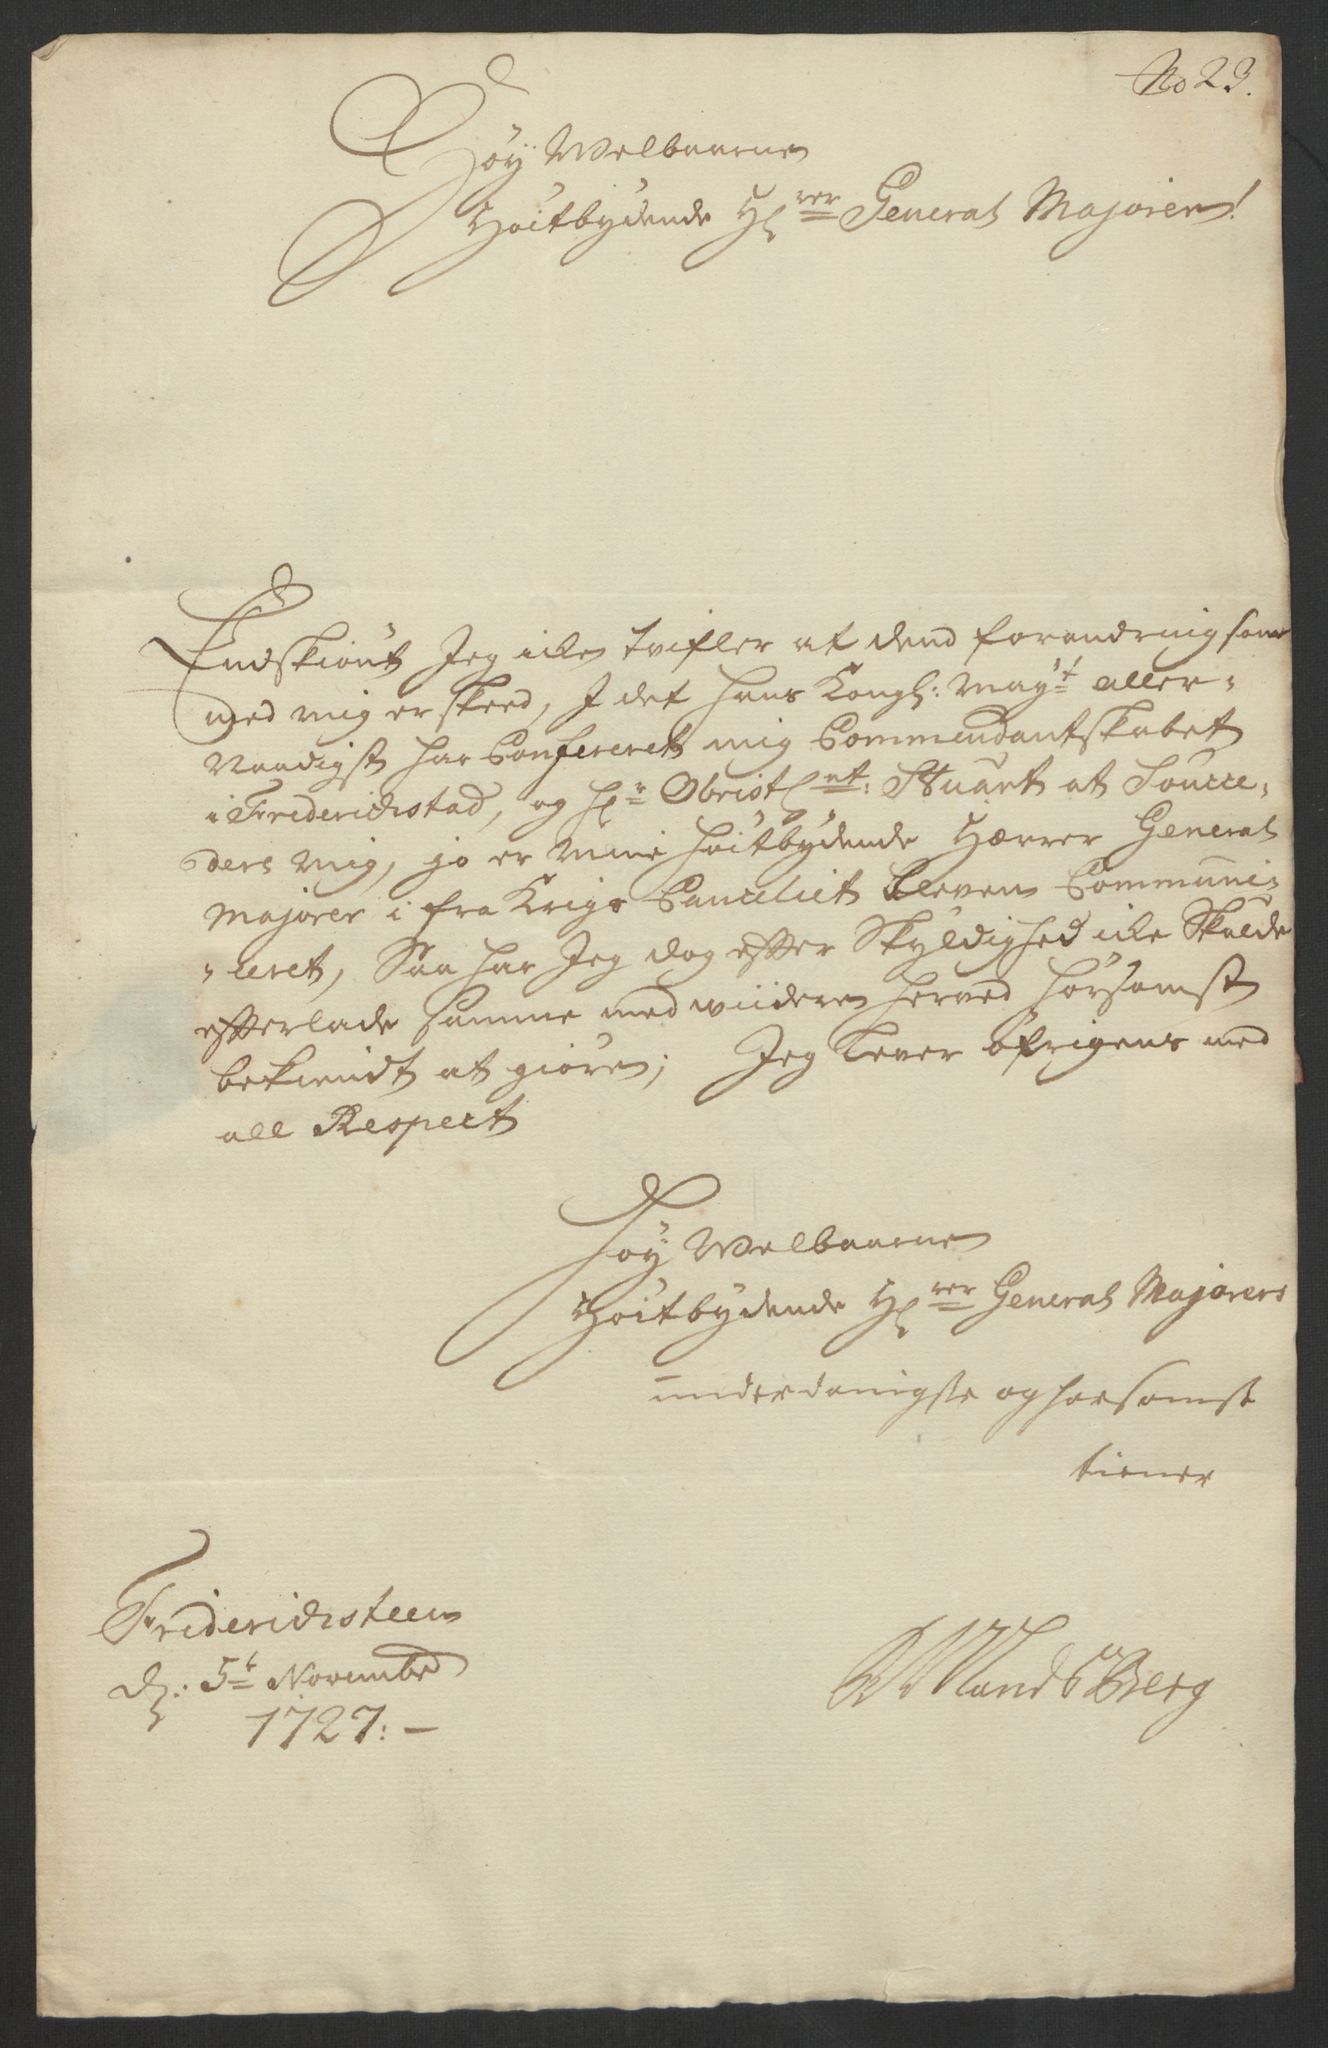 No 23.
Höÿ Welbaarne
Höitbydende H:rer General Majorer!
Endskiönt Jeg icke tvifler at dend forandring som
med mig er skeed, I det hans Kongl: May:t aller-
naadigst har Confereret mig Commendantskabet
i Friderichstad, og h:r Obristl:nt: Stuart at Succe-
dere mig, jo er mine höitbydende Herrer General
Majorer i fra Krigs Canceliet bleven Communi-
-ceret, Saa har Jeg dog efter Skyldighed icke Skulde
efterlade samme med wiidere herved hörsamst
bekiendt at giöre; Jeg lever öfrigens med
all Respect
Höy Welbaarne
Höitbydende H:rer General Majorers
underdanigste og hörsamst
tiener
Friderichsteen
d: 5t Novembr
1727:-
LandsBerg